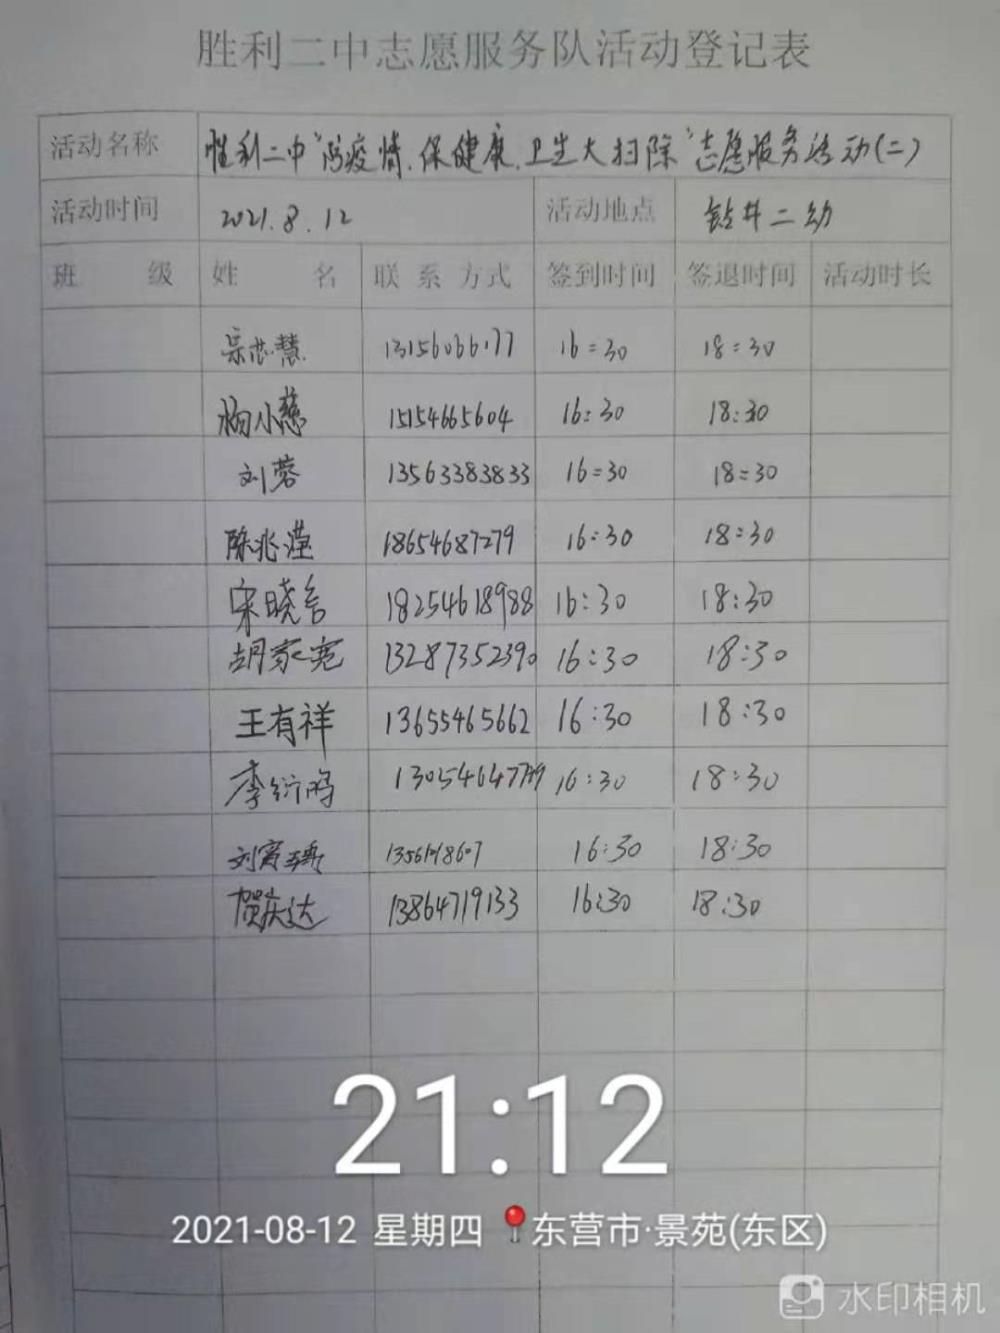 胜利二中志愿服务队活动登记表
活动名称 胜利二中"防疫情.保健康.卫生大扫除"志愿服务活动(二)
活动时间 2021.8.12 活动地点 钻井二幼
班 级 姓 名 联 系 方式 签到时间 签退时间 活动时长
13156066177 16:30 18:30
杨小慈 15154665604 16:30 18:30
刘蓉 13563383833 16:30 18:30
陈兆滢 18654687279 16:30 18:30
宋晓言 18254618988 16:30 18:30
胡家宽 13287352390 16:30 18:30
王有祥 13655465662 16:30 18:30
李衍鸣 16:30 18:30
16:30 18:30
贺庆达 13864719133 16:30 18:30
21:12
2021-08-12 星期四 东营市·景苑(东区)
水印相机